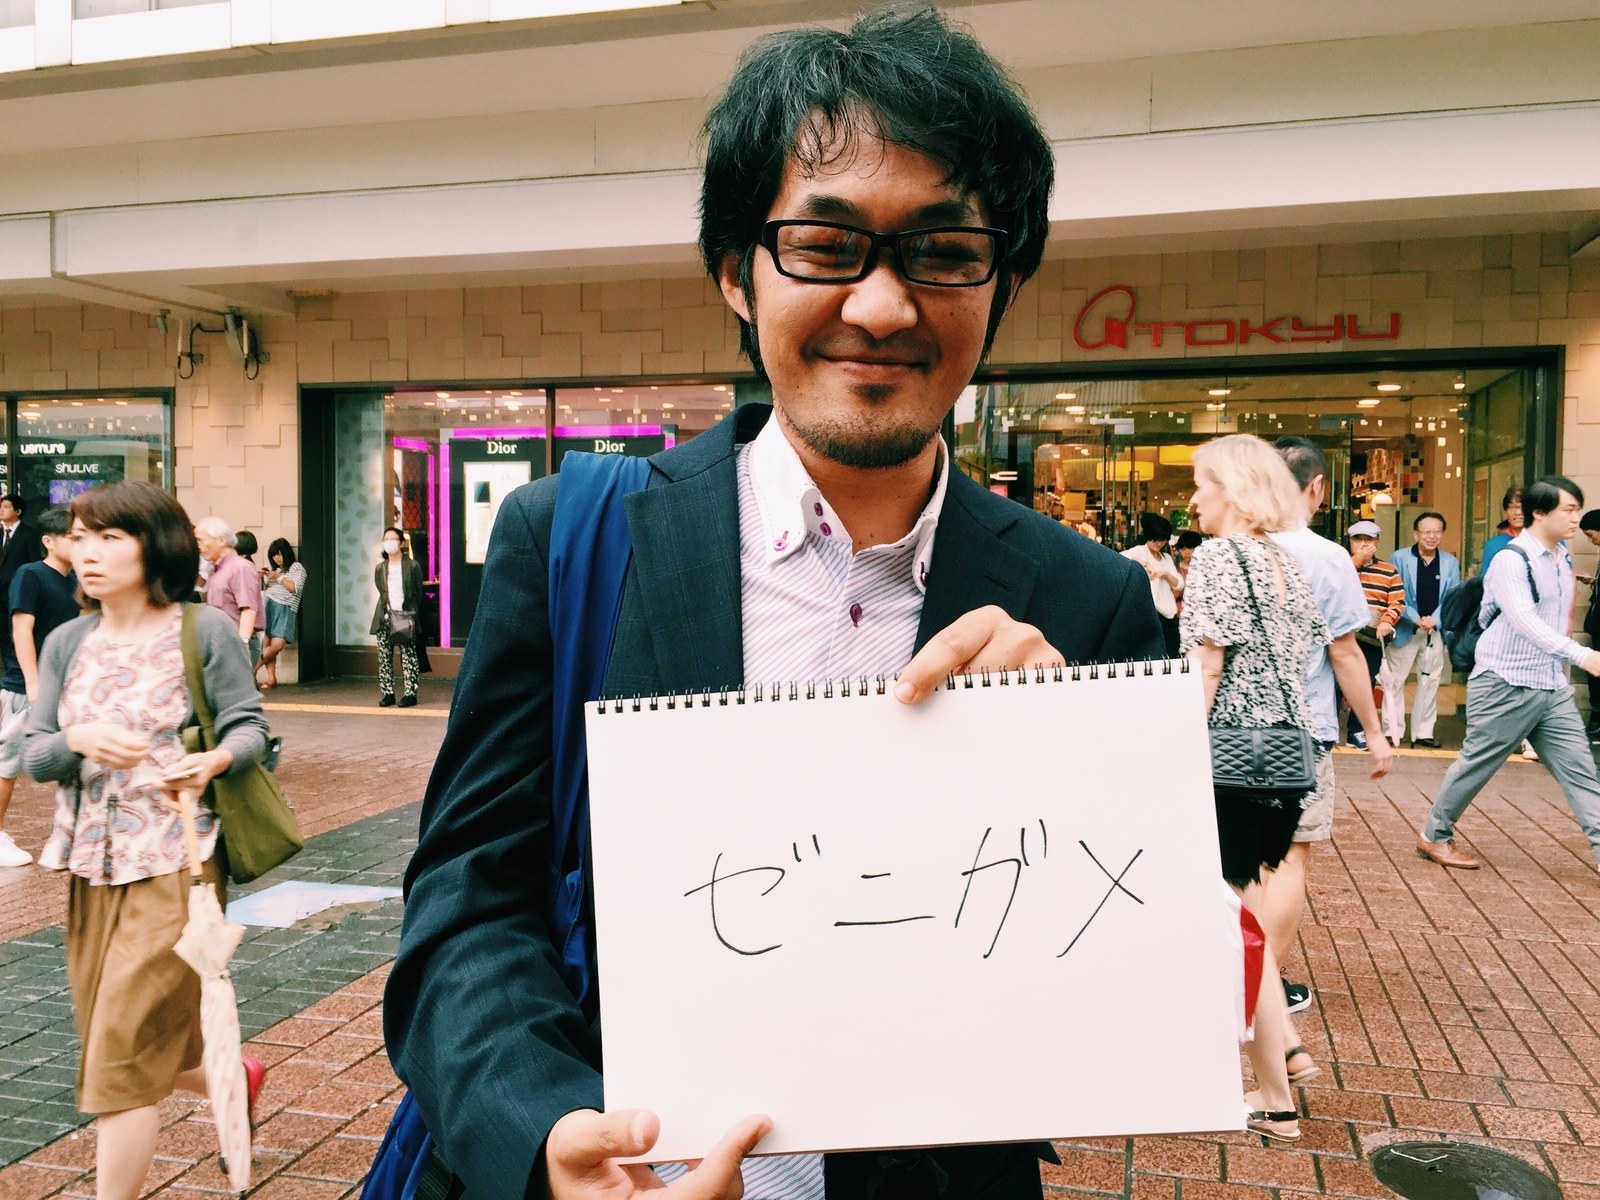 TOKYU
Dior
Dior
uemura
shuLIVE
ゼニガメ